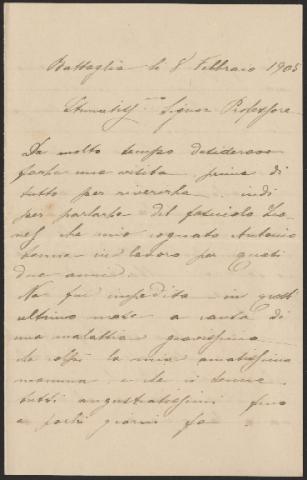 Battaglia le 8 Febbraio 1905
Stimatiss.mo Signor Professore
Da molto tempo desideravo
farle una visita prima di
tutto per riverirla indi
per parlarle del fascicolo
che mio cognato Antonio
tenne in lavoro per quasi
due anni.
Ne fui impedita in quest
ultimo mese a causa di
una malattia gravissima
che offrì la mia amatissima
mamma e che ci tenne
tutti angustiatissimi fino
a pochi giorni fa